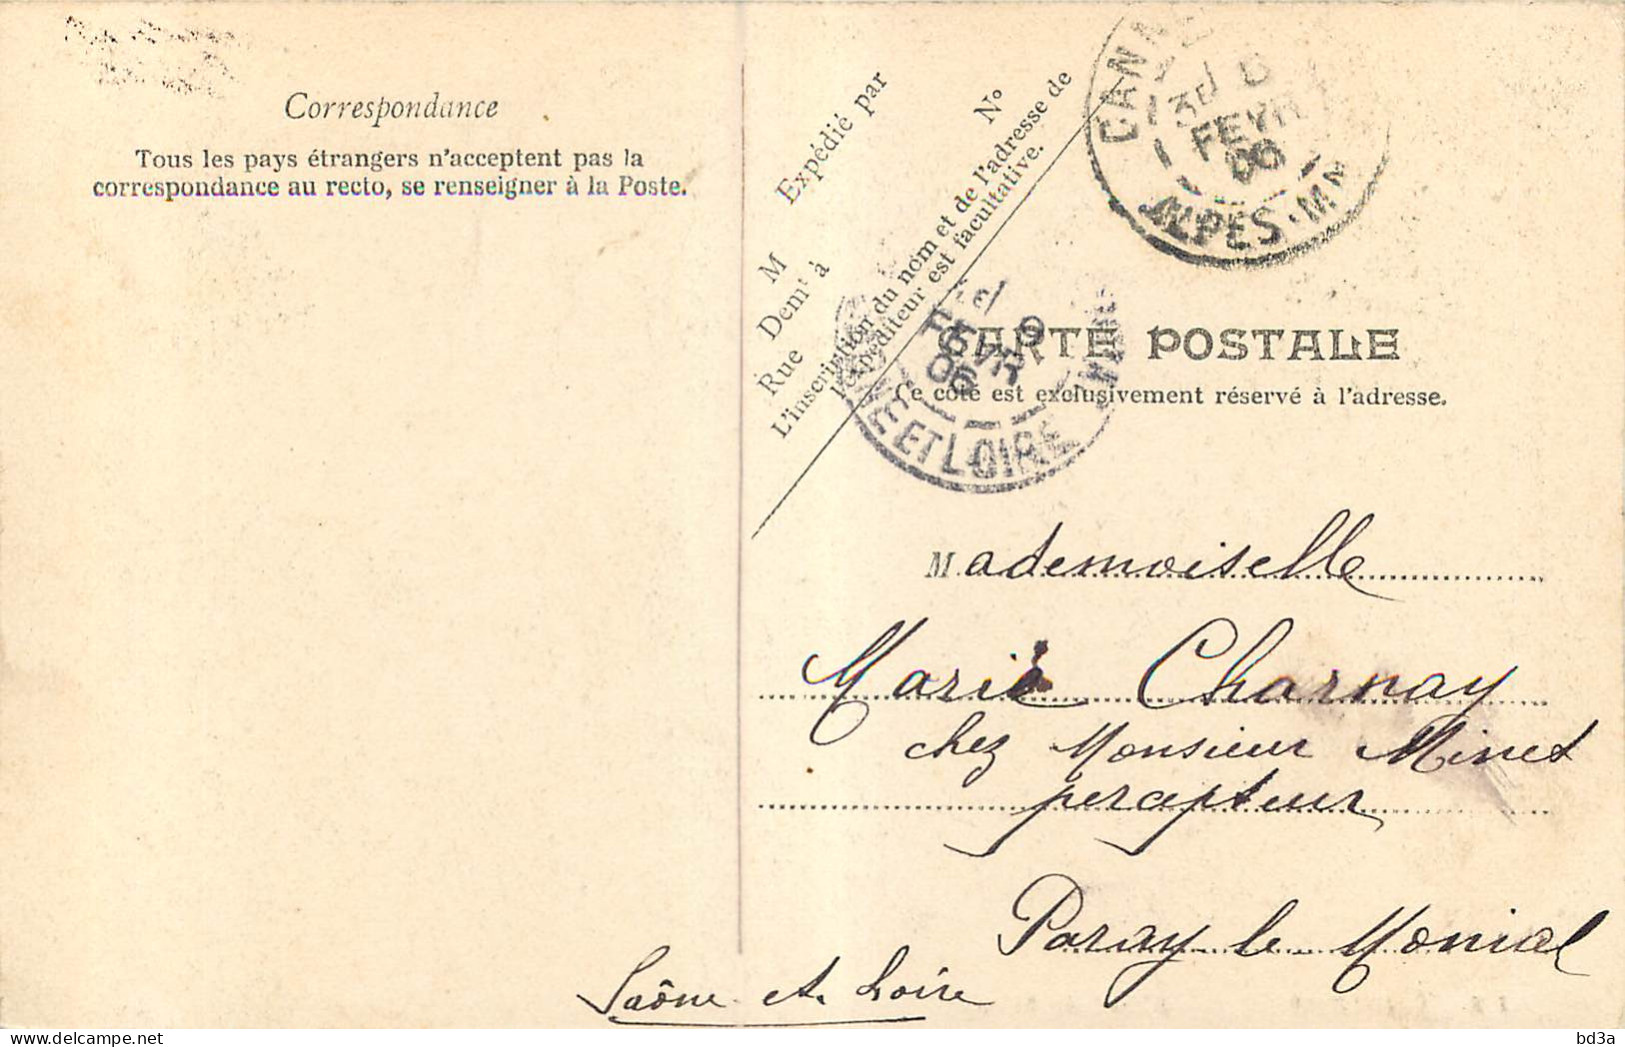 Correspondance
Tous les pays étrangers n'acceptent pas la
correspondance au recto, se renseigner à la Poste.
Expédié par
M
Demt à
Rue
N°
L'inscription du nom et de l'adresse de
l'expéditeur est facultative.
CANNES
FEVR
ALPES-Mmes
FEVR
06
ET LOIRE
CARTE POSTALE
Ce côté est exclusivement réservé à l'adresse.
Mademoiselle
Marie Charnay
chez Monsieur Minet
percepteur
Paray le Monial
Saône et Loire
bd3a